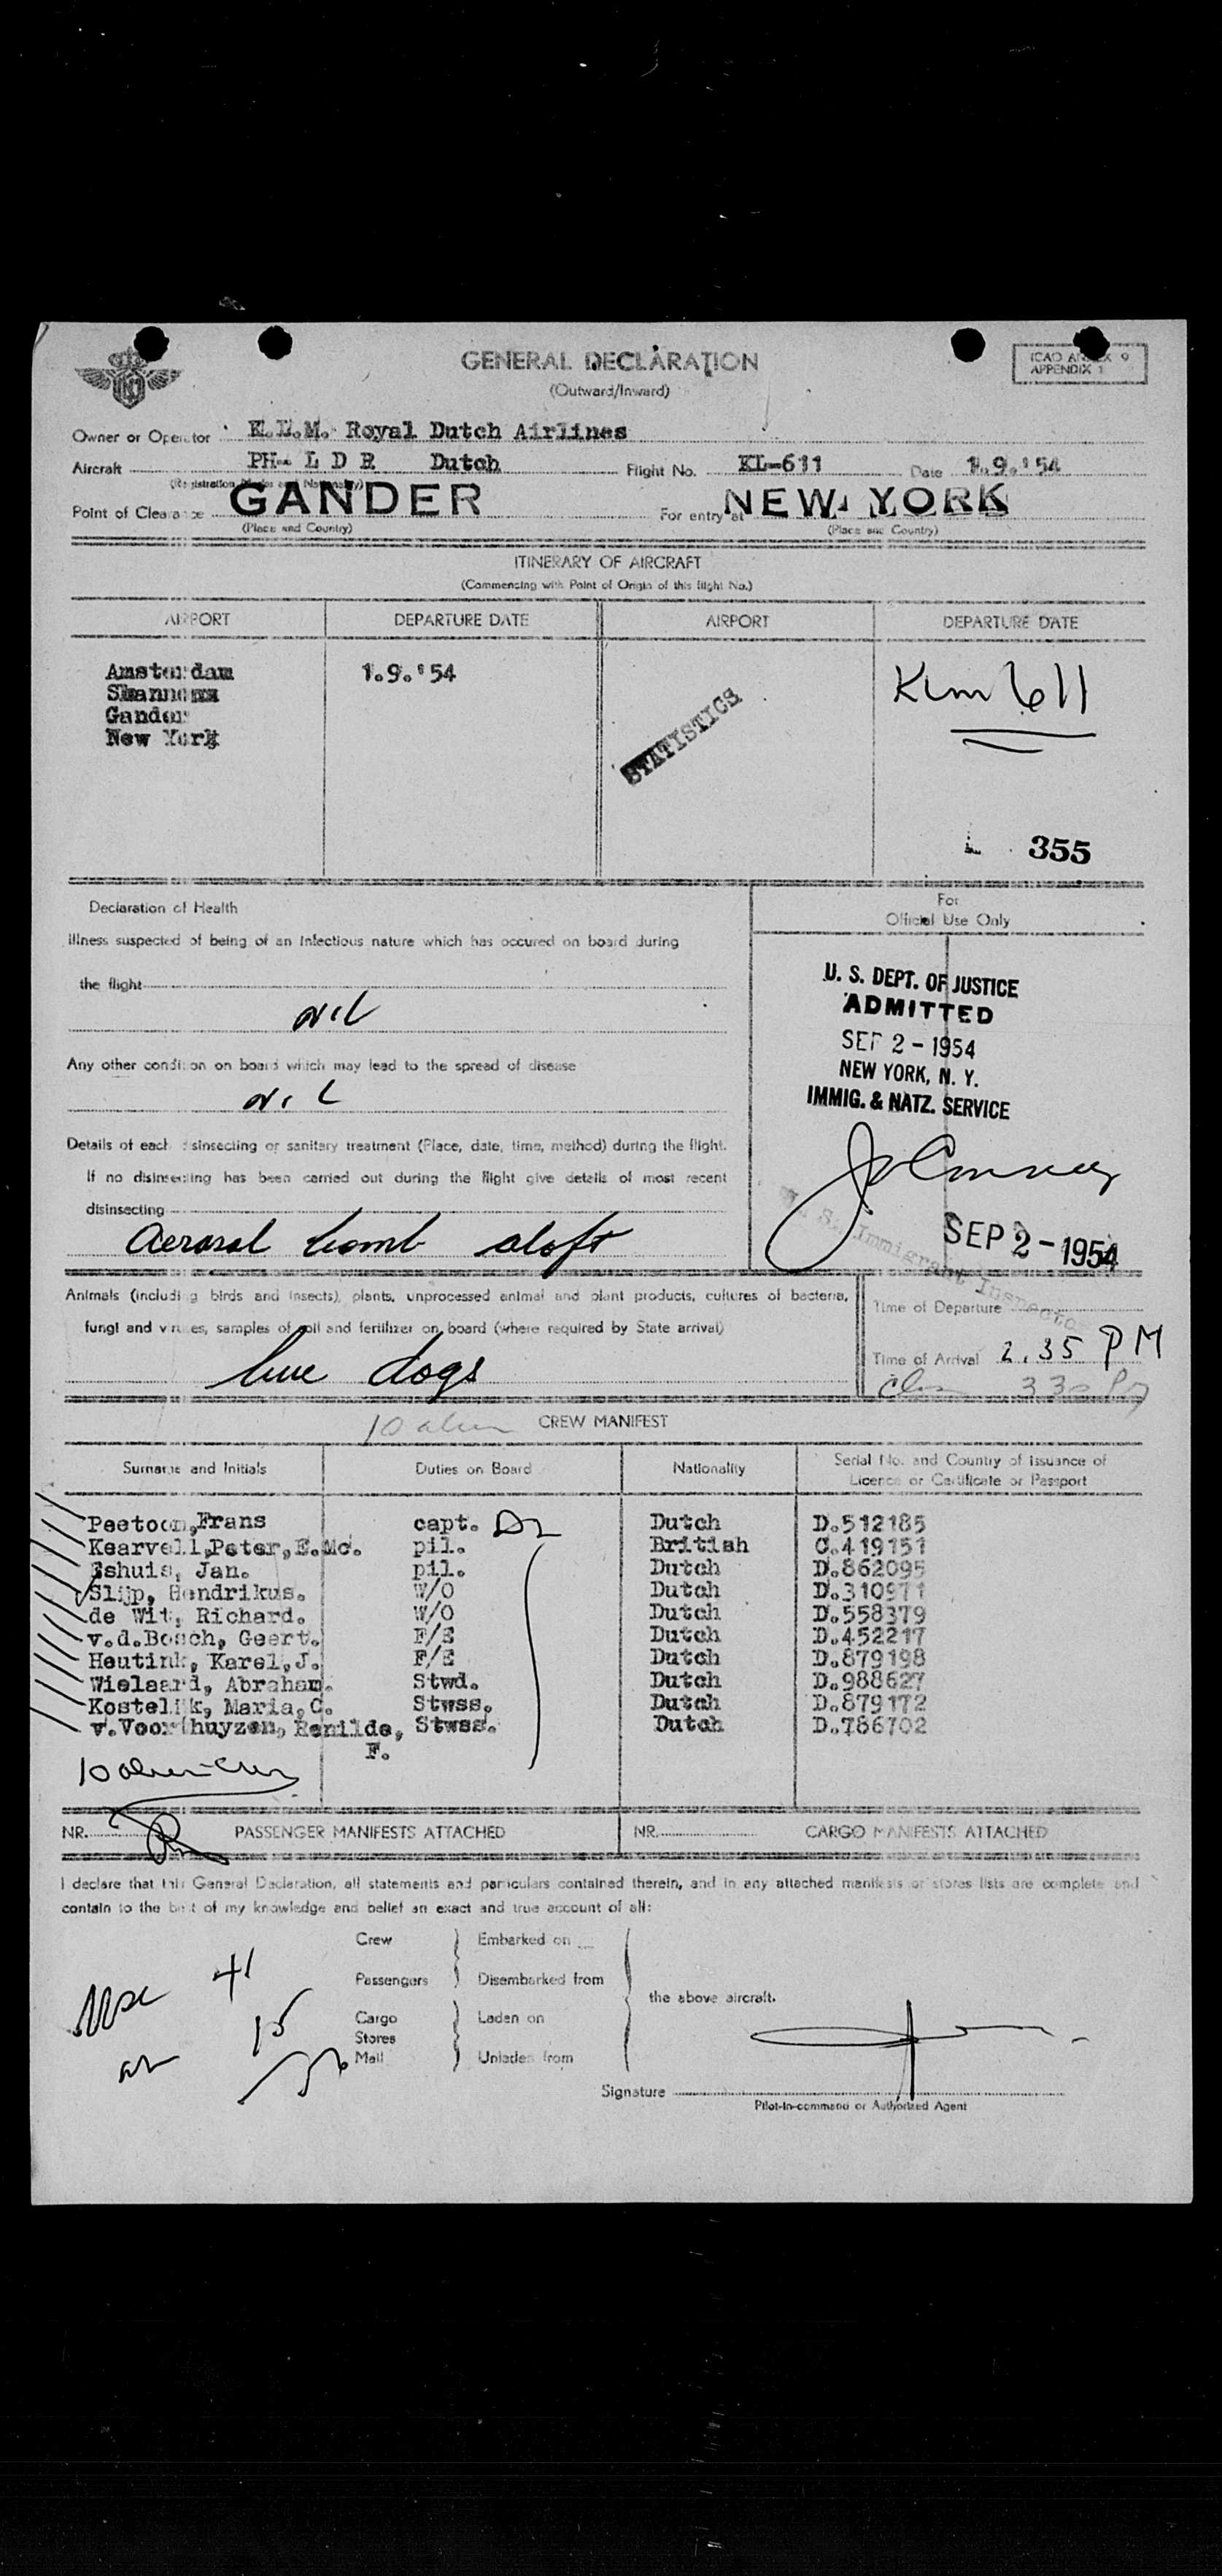 GENERAL DECLARATION
(Outward/Inward)
ICAO ANNEX 9
APPENDIX 1
Owner or Operator K.L.M. Royal Dutch Airlines
Aircraft PH- L D R Dutch Flight No. KL-611 Date 1.9.'54
(Registration Marks and Nationality)
Point of Clearance GANDER For entry at NEW YORK
(Place and Country) (Place and Country)
ITINERARY OF AIRCRAFT
(Commencing with Point of Origin of this flight No.)
AIRPORT DEPARTURE DATE AIRPORT DEPARTURE DATE
Amsterdam 1.9.'54
Shannon
Gander
New York
STATISTICS
Klm 611
355
Declaration of Health
For
Official Use Only
Illness suspected of being of an infectious nature which has occured on board during
the flight
nil
Any other condition on board which may lead to the spread of disease
nil
U. S. DEPT. OF JUSTICE
ADMITTED
SEP 2 - 1954
NEW YORK, N. Y.
IMMIG. & NATZ. SERVICE
Details of each disinsecting or sanitary treatment (Place, date, time, method) during the flight.
If no disinsecting has been carried out during the flight give details of most recent
disinsecting
Aerosol bomb aloft
U. S. Immigrant Inspector
SEP 2 - 1954
Animals (including birds and insects), plants, unprocessed animal and plant products, cultures of bacteria,
fungi and viruses, samples of soil and fertilizer on board (where required by State arrival)
live dogs
Time of Departure
Time of Arrival 2.35 PM
330 PM
10 alien CREW MANIFEST
Surname and Initials Duties on Board Nationality Serial No. and Country of Issuance of
Licence or Certificate or Passport
Peetoom,Frans capt. Dutch D.512185
Kearvell,Peter,E.Mc. pil. British C.419151
Eshuis, Jan. pil. Dutch D.862095
Slijp, Hendrikus. W/O Dutch D.310971
de Wit, Richard. W/O Dutch D.558379
v.d.Bosch, Geert. F/E Dutch D.452217
Heutink, Karel,J. F/E Dutch D.879198
Wielaard, Abraham. Stwd. Dutch D.988627
Kostelijk, Maria,C. Stwss. Dutch D.879172
v.Voorthuyzen, Renilde, Stwss. Dutch D.786702
F.
10 alien crew
NR. PASSENGER MANIFESTS ATTACHED NR. CARGO MANIFESTS ATTACHED
I declare that this General Declaration, all statements and particulars contained therein, and in any attached manifests or stores lists are complete and
contain to the best of my knowledge and belief an exact and true account of all:
Crew Embarked on
Passengers Disembarked from
the above aircraft.
Cargo Laden on
Stores
Mail Unladen from
41
15
56
Signature
Pilot-in-command or Authorized Agent